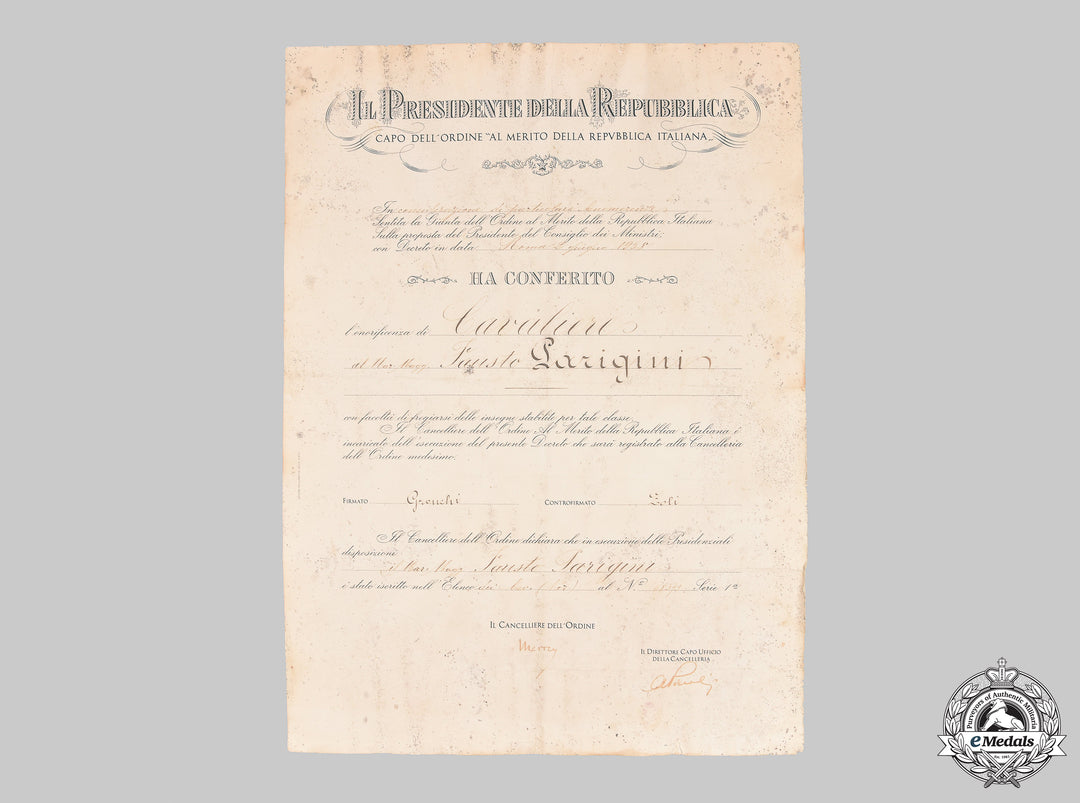 IL PRESIDENTE DELLA REPUBBLICA
CAPO DELL'ORDINE "AL MERITO DELLA REPVBBLICA ITALIANA"
In considerazione di particolari benemerenze
Sentita la Giunta dell'Ordine al Merito della Repubblica Italiana
Sulla proposta del Presidente del Consiglio dei Ministri;
con Decreto in data Roma 2 giugno 1958
HA CONFERITO
l'onorificenza di Cavaliere
al Mar. Magg. Fausto Parigini
con facoltà di fregiarsi delle insegne stabilite per tale classe.
Il Cancelliere dell'Ordine Al Merito della Repubblica Italiana è
incaricato dell'esecuzione del presente Decreto che sarà registrato alla Cancelleria
dell'Ordine medesimo.
FIRMATO Gronchi CONTROFIRMATO Zoli
Il Cancelliere dell'Ordine dichiara che in esecuzione delle Presidenziali
disposizioni
il Mar. Magg. Fausto Parigini
è stato iscritto nell'Elenco dei Cav. al N.º Serie 1ª
IL CANCELLIERE DELL'ORDINE
IL DIRETTORE CAPO UFFICIO
DELLA CANCELLERIA
Purveyors of Authentic Militaria
eMedals